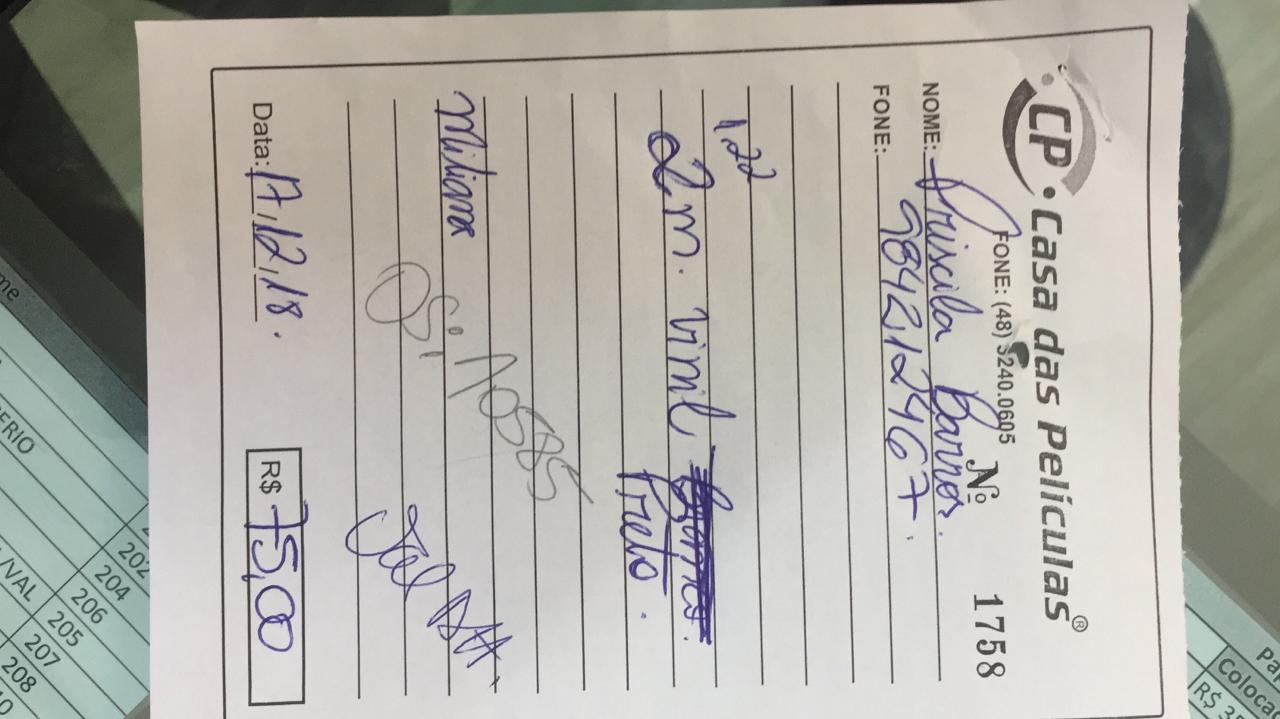 CP • Casa das Películas®
FONE: (48) 3240.0605 Nº 1758
NOME: Priscila Barros.
FONE: 984212467.
1,22
2m. Vinil
Preto.
OS: 110585
Data: 17,12,18.
R$ 75,00
ERIO
/VAL
202
204
206
205
207
208
Coloca
R$ 3